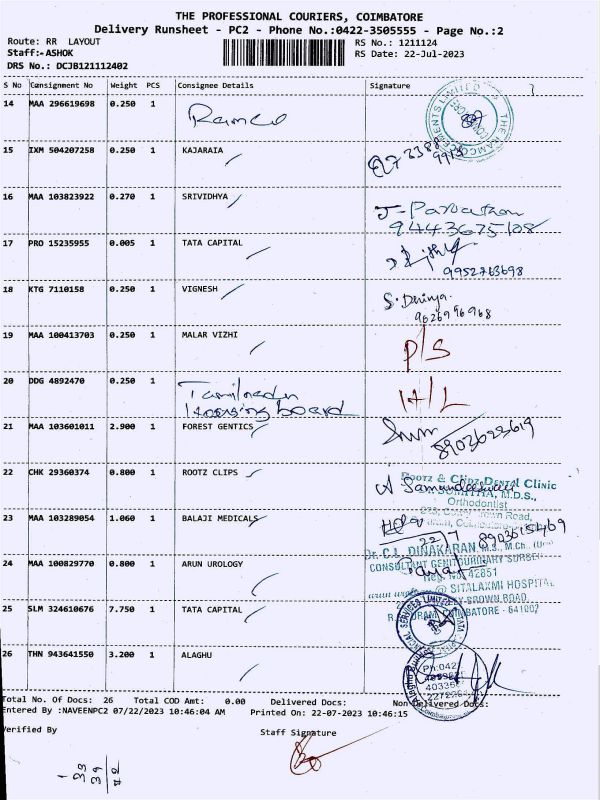 THE PROFESSIONAL COURIERS, COIMBATORE
Delivery Runsheet - PC2 - Phone No.:0422-3505555 - Page No.:2
Route: RR LAYOUT
RS No.: 1211124
Staff:-ASHOK
RS Date: 22-Jul-2023
DRS No.: DCJB121112402
S No Consignment No Weight PCS Consignee Details Signature
14 MAA 296619698 0.250 1 Ramco
15 IXM 504207258 0.250 1 KAJARAIA
16 MAA 103823922 0.270 1 SRIVIDHYA J-Parvatham
9443675108
17 PRO 15235955 0.005 1 TATA CAPITAL
9952763698
18 KTG 7110158 0.250 1 VIGNESH S. Divya.
9626996968
19 MAA 100413703 0.250 1 MALAR VIZHI P/S
20 DDG 4892470 0.250 1 Tamilnadu
Housing board
H/L
21 MAA 103601011 2.900 1 FOREST GENTICS 8903623619
22 CHK 29360374 0.800 1 ROOTZ CLIPS
ROOTZ & CLIPZ DENTAL Clinic
M.D.S.,
Orthodontist
Road,
23 MAA 103289054 1.060 1 BALAJI MEDICALS
22/7
Dr. C.L. DINAKARAN, M.S., M.Ch.,
24 MAA 100829770 0.800 1 ARUN UROLOGY
CONSULTANT GENITOURINARY
Reg. No. 42851
@ SITALAXMI HOSPITAL
25 SLM 324610676 7.750 1 TATA CAPITAL
BROWN ROAD,
COIMBATORE - 641002
26 THN 943641550 3.200 1 ALAGHU
Total No. Of Docs: 26 Total COD Amt: 0.00 Delivered Docs: Non Delivered Docs:
Entered By :NAVEENPC2 07/22/2023 10:46:04 AM Printed On: 22-07-2023 10:46:15
Verified By Staff Signature